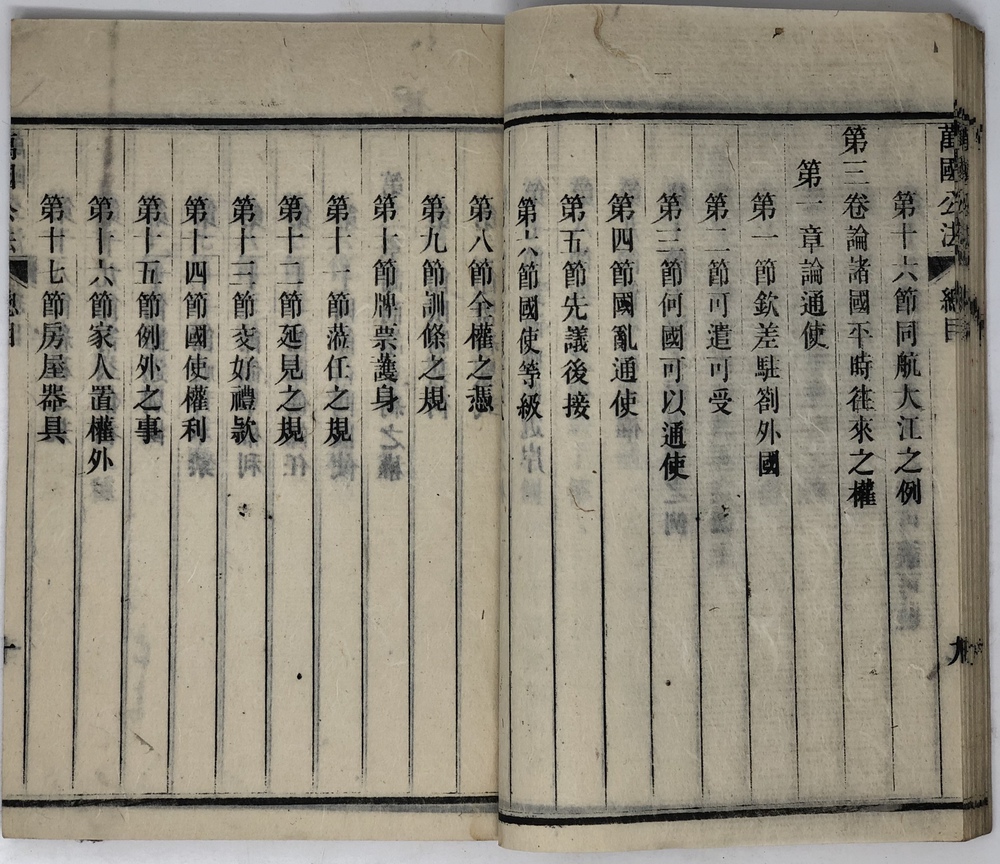 萬國公法 總目 九
第十六節同航大江之例
第三卷論諸國平時往來之權
第一章論通使
第一節欽差駐劄外國
第二節可遣可受
第三節何國可以通使
第四節國亂通使
第五節先議後接
第六節國使等級
第八節全權之憑
第九節訓條之規
第十節牌票護身
第十一節蒞任之規
第十二節延見之規
第十三節交好禮款
第十四節國使權利
第十五節例外之事
第十六節家人置權外
第十七節房屋器具
萬國公法 總目 十